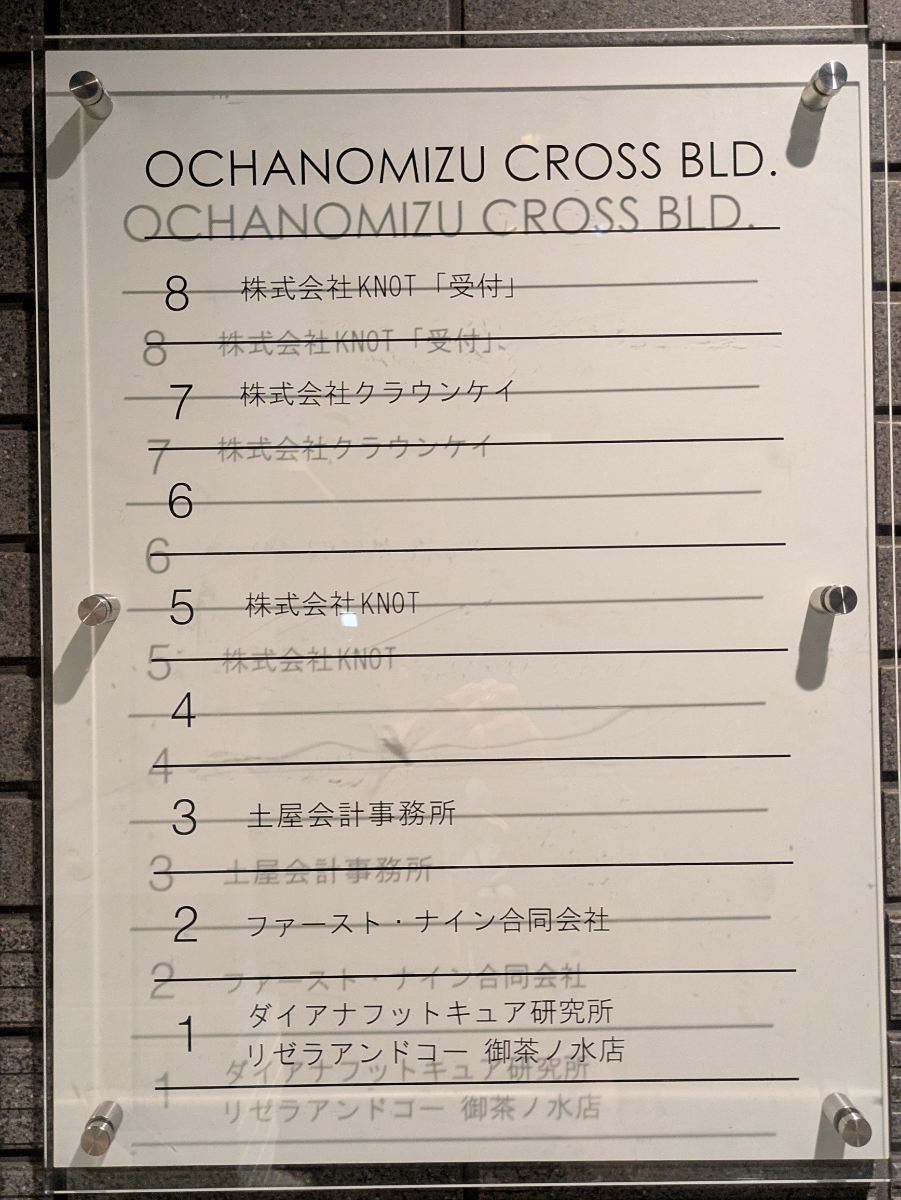 OCHANOMIZU CROSS BLD.
8 株式会社KNOT「受付」
7 株式会社クラウンケイ
6
5 株式会社KNOT
4
3 土屋会計事務所
2 ファースト・ナイン合同会社
1 ダイアナフットキュア研究所
リゼラアンドコー 御茶ノ水店